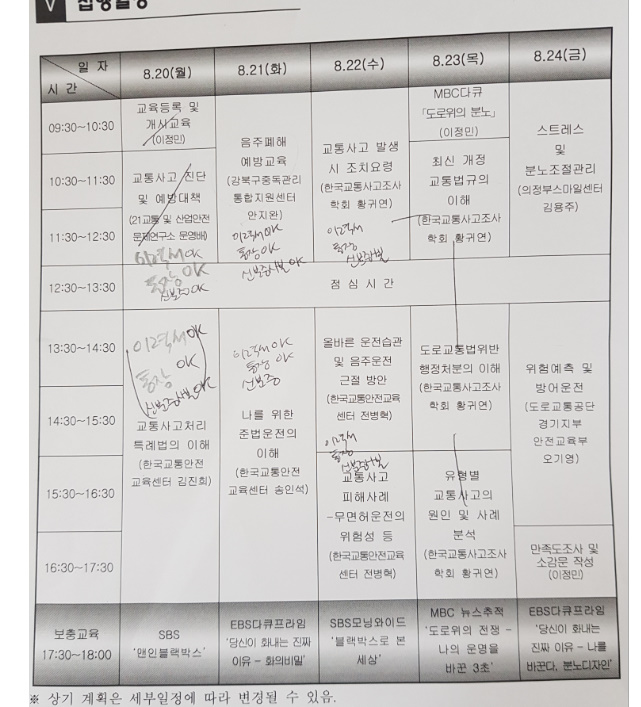 V 집행일정
일 자
시 간
8.20(월)
8.21(화)
8.22(수)
8.23(목)
8.24(금)
09:30~10:30
10:30~11:30
11:30~12:30
12:30~13:30
13:30~14:30
14:30~15:30
15:30~16:30
16:30~17:30
보충교육
17:30~18:00
교육등록 및
개시교육
(이정민)
교통사고 진단
및 예방대책
(21교통 및 산업안전
문제연구소 문영배)
이력서 OK
통장 OK
신보증 OK
음주폐해
예방교육
(강북구중독관리
통합지원센터
안지완)
이력서 OK
통장 OK
신보증서 OK
교통사고 발생
시 조치요령
(한국교통사고조사
학회 황귀연)
이력서
통장
MBC다큐
「도로위의 분노」
(이정민)
최신 개정
교통법규의
이해
(한국교통사고조사
학회 황귀연)
스트레스
및
분노조절관리
(의정부스마일센터
김용주)
점 심 시 간
이력서 OK
통장 OK
OK
교통사고처리
특례법의 이해
(한국교통안전
교육센터 김진희)
이력서 OK
통장 OK
신보증
나를 위한
준법운전의
이해
(한국교통안전
교육센터 송인석)
올바른 운전습관
및 음주운전
근절 방안
(한국교통안전교육
센터 전병혁)
이력서
통장
교통사고
피해사례
-무면허운전의
위험성 등
(한국교통안전교육
센터 전병혁)
도로교통법위반
행정처분의 이해
(한국교통사고조사
학회 황귀연)
유형별
교통사고의
원인 및 사례
분석
(한국교통사고조사
학회 황귀연)
위험예측 및
방어운전
(도로교통공단
경기지부
안전교육부
오기영)
만족도조사 및
소감문 작성
(이정민)
SBS
'맨인블랙박스'
EBS다큐프라임
'당신이 화내는 진짜
이유 - 화의비밀'
SBS모닝와이드
'블랙박스로 본
세상'
MBC 뉴스추적
'도로위의 전쟁 -
나의 운명을
바꾼 3초'
EBS다큐프라임
'당신이 화내는
진짜 이유 - 나를
바꾼다, 분노디자인'
※ 상기 계획은 세부일정에 따라 변경될 수 있음.